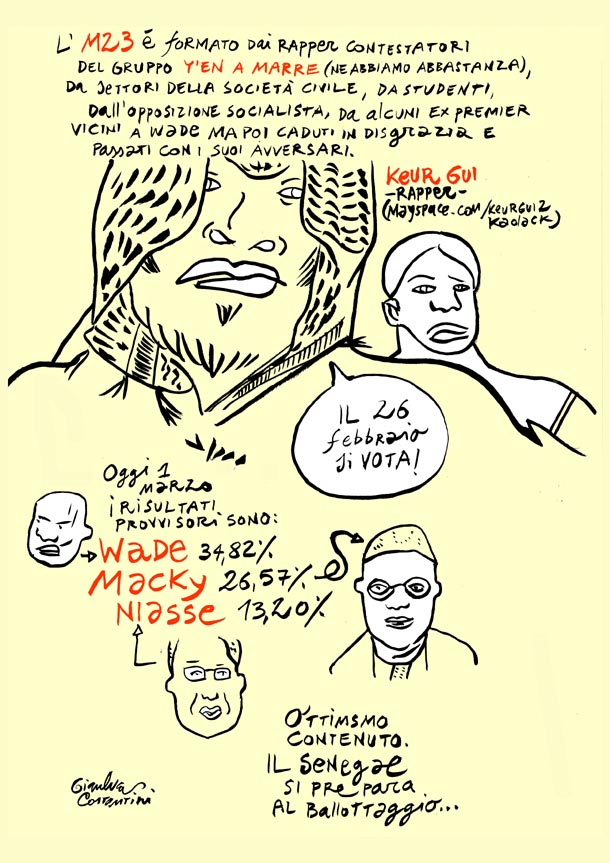 L' M23 é formato dai rapper contestatori
del gruppo Y'EN A MARRE (ne abbiamo abbastanza),
da settori della società civile, da studenti,
dall'opposizione socialista, da alcuni ex premier
vicini a Wade ma poi caduti in disgrazia e
passati con i suoi avversari.
KEUR GUI
-RAPPER-
(Mayspace.com/Keurgui2
Kaolack)
IL 26
febbraio
si VOTA!
Oggi 1
marzo
i risultati
provvisori sono:
Wade 34,82%
Macky 26,57%
Niasse 13,20%
Ottimsmo
contenuto.
Il Senegal
si prepara
al ballottaggio...
Gianluca
Costantini